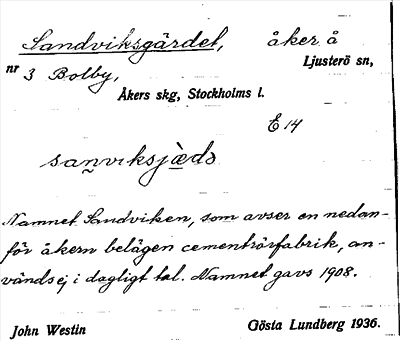 Sandviksgärdet, åker å
nr 3 Bolby, Ljusterö sn,
Åkers skg, Stockholms l.
E 14
san̰viksjæ̀də
Namnet Sandviken, som avser en nedan-
för åkern belägen cementrörfabrik, an-
vänds ej i dagligt tal. Namnet gavs 1908.
John Westin Gösta Lundberg 1936.